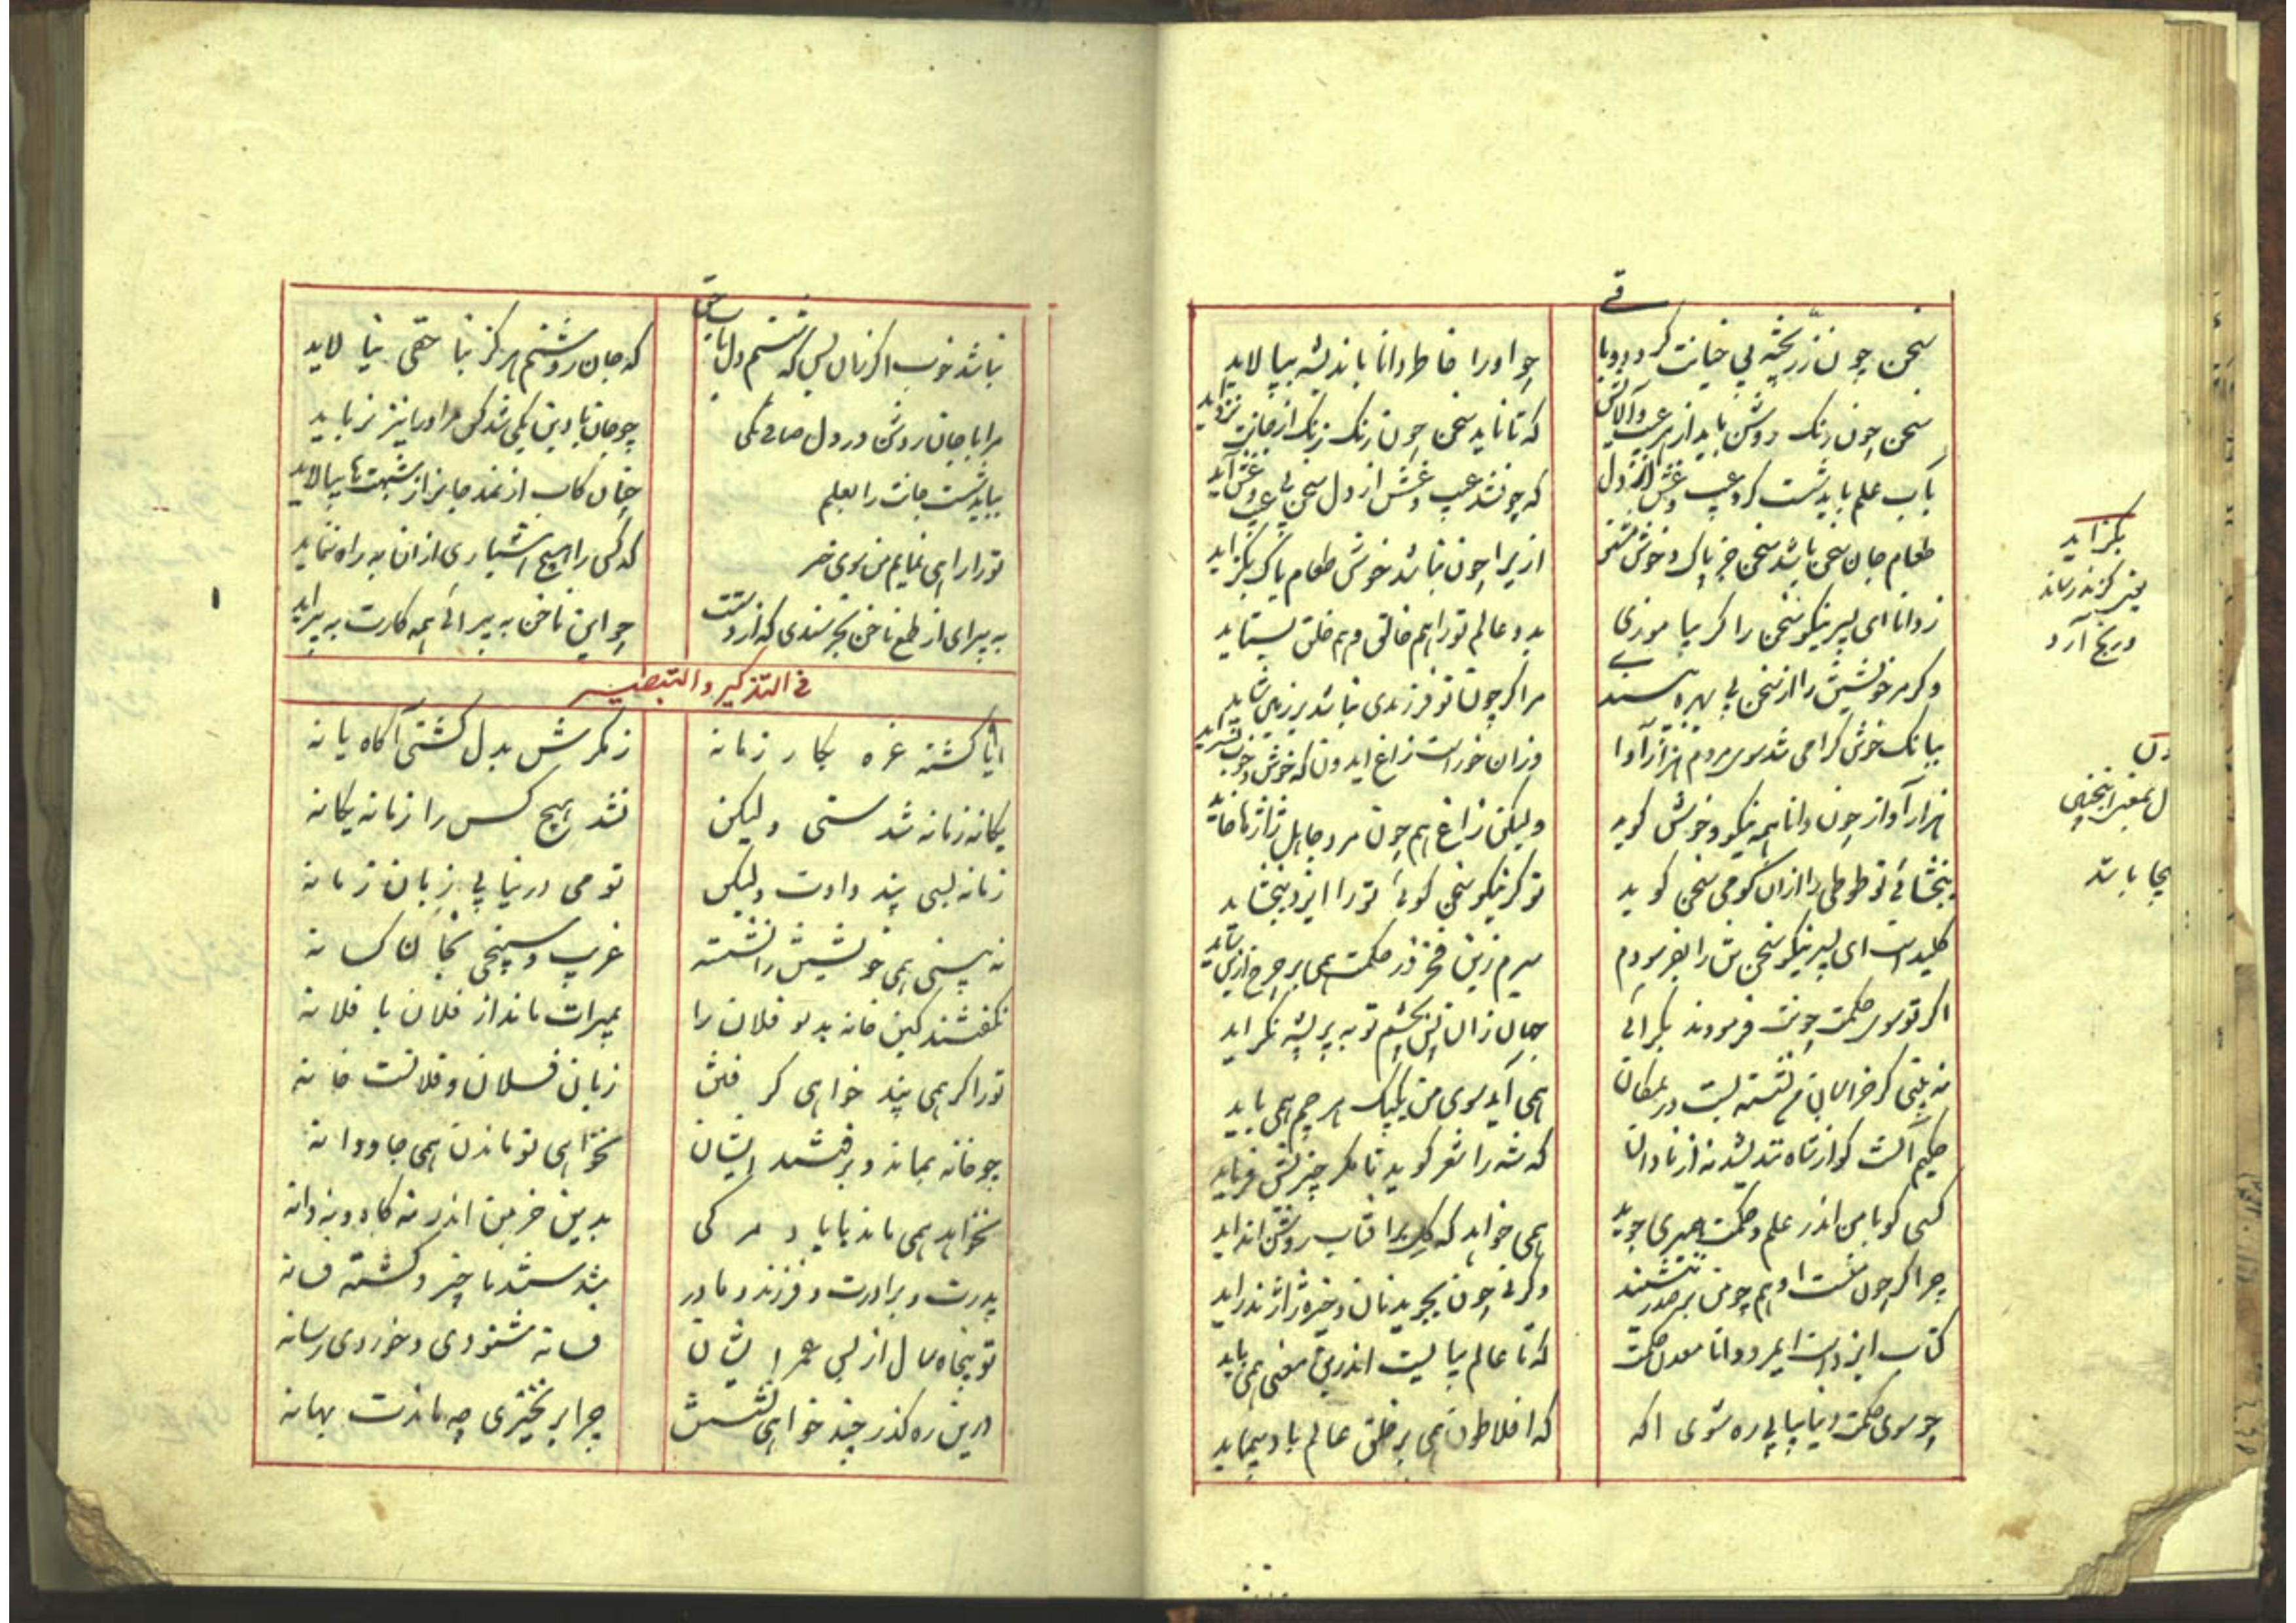 سخن چون زر پخته بی خیانت گردد و با قی
چو او را خاطر دانا باندیشه بپالاید
سخن چون زنگ روشن باید از هر عیب و آلایش
که تا ناید سخن چون زنگ زنگ از جانت نزداید
بآب علم باید شست گرد عیب و غش از دل
که چون شد عیب و غش از دل سخن بی عیب و غش آید
طعام جان سخن باشد سخن جز پاک و خوش مشنو
ازیرا چون نباشد خوش طعام پاک بگزاید
ز دانا ای پسر نیکو سخن را گر بیاموزی
بدو عالم تو را هم خالق و هم خلق بستاید
وگر مر خویشتن را از سخن بی بهره بپسندی
مرا گر چون تو فرزندی نباشد بر زمین شاید
ببانگ خوش گرامی شد سوی مردم هزارآوا
وزان خوار است زاغ ایدون که خوش و خوب نسراید
هزارآواز چون دانا همه نیکو و خوش گوید
ولیکن زاغ همچون مرد جاهل ژاژها خاید
ببخشائی تو طوطی را ازان کو می سخن گوید
تو گر نیکو سخن گوئی تو را ایزد ببخشاید
کلید است ای پسر نیکو سخن
سرم زین فخر در حکمت همی بر چرخ ازین ساید
اگر تو سوی حکمت چونت فرمودند بگرائی
جهان زان پس بچشم تو به پر پشه نگراید
نه بینی کز خراسان من نشسته پست در یمگان
همی آید سوی من یک بیک هر چم همی باید
حکیم آنست کو از شاه نندیشد نه آن نادان
که شه را شعر گوید تا مگر چیزیش فرماید
کسی کو با من اندر علم و حکمت همبری جوید
همی خواهد که گل بر آفتاب روشن انداید
چرا گر چون منست او هم چو من بر صدر ننشیند
وگر نی چون بجوید نان و خیره ژاژ ندراید
کتاب ایزد است ایمرد دانا معدن حکمت
که تا عالم بپایست اندرین معنی همی پاید
چو سوی حکمت دینا بیابی ره شوی آگه
که افلاطون همی بر خلق عالم باد پیماید
بگزاید
یعنی گزند رساند
و رنج آرد
نباشد خوب اگر زان پس که شستم دل بنا حق
که جان روشنم هرگز بنا حقی بیالاید
مرا با جان روشن در دل صافی یکی
چو جان با دین یکی شد کس مر او را نیز نرباید
بباید شست جانت را بعلم
چنان کآب از نمد جانرا ز شبهت‌ها بپالاید
تو را راهی نمایم من سوی خیر
که کس را هیچ هشیاری ازان به راه ننماید
به پیرای از طمع ناخن بخرسندی که از دستت
چو این ناخن به پیرائی همه کارت به پیراید
فی التذکیر و التبصیر
ایا گشته غره بکار زمانه
ز مکرش بدل گشتی آگاه یا نه
یگانه زمانه شدستی ولیکن
نشد هیچ کس را زمانه یگانه
زمانه بسی پند دادت ولیکن
تو می در نیابی زبان زمانه
نه بینی همی خویشتن را نشسته
غریب و سپنجی بخان کسانه
نگفتند کین خانه بد مر فلان را
بمیراث ماند از فلان با فلانه
تو را گر همی پند خواهی گرفتن
زبان فلان و فلانست خانه
چو خانه بماند و برفتند ایشان
نخواهی تو ماندن همی جاودانه
نخواهد همی ماند با باد مرگی
بدین خرمن اندر نه کاه و نه دانه
پدرت و برادرت و فرزند و مادر
شدستند ناچیز و گشته فسانه
تو پنجاه سال از پس عمر ایشان
فسانه شنودی و خوردی رسانه
درین ره گذر چند خواهی نشستن
چرا بر نخیزی چه ماندت بهانه